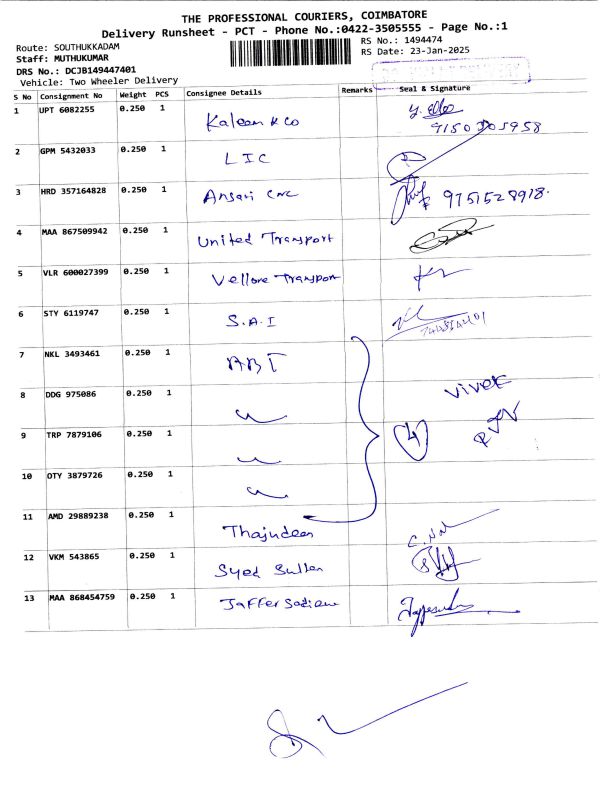 THE PROFESSIONAL COURIERS, COIMBATORE
Delivery Runsheet - PCT - Phone No.:0422-3505555 - Page No.:1
Route: SOUTHUKKADAM
RS No.: 1494474
Staff: MUTHUKUMAR
RS Date: 23-Jan-2025
DRS No.: DCJB149447401
Vehicle: Two Wheeler Delivery
S No Consignment No Weight PCS Consignee Details Remarks Seal & Signature
1 UPT 6082255 0.250 1 Kaleen & Co
2 GPM 5432033 0.250 1 LIC
3 HRD 357164828 0.250 1 Ansari CNC 9751528918.
4 MAA 867509942 0.250 1 United Transport
5 VLR 600027399 0.250 1 Vellore Transport
6 STY 6119747 0.250 1 S.A.I
7 NKL 3493461 0.250 1 ABT
8 DDG 975086 0.250 1 Vivek
9 TRP 7879106 0.250 1 4
10 OTY 3879726 0.250 1
11 AMD 29889238 0.250 1 Thajudeen
12 VKM 543865 0.250 1 Syed Sultan
13 MAA 868454759 0.250 1 Jaffer